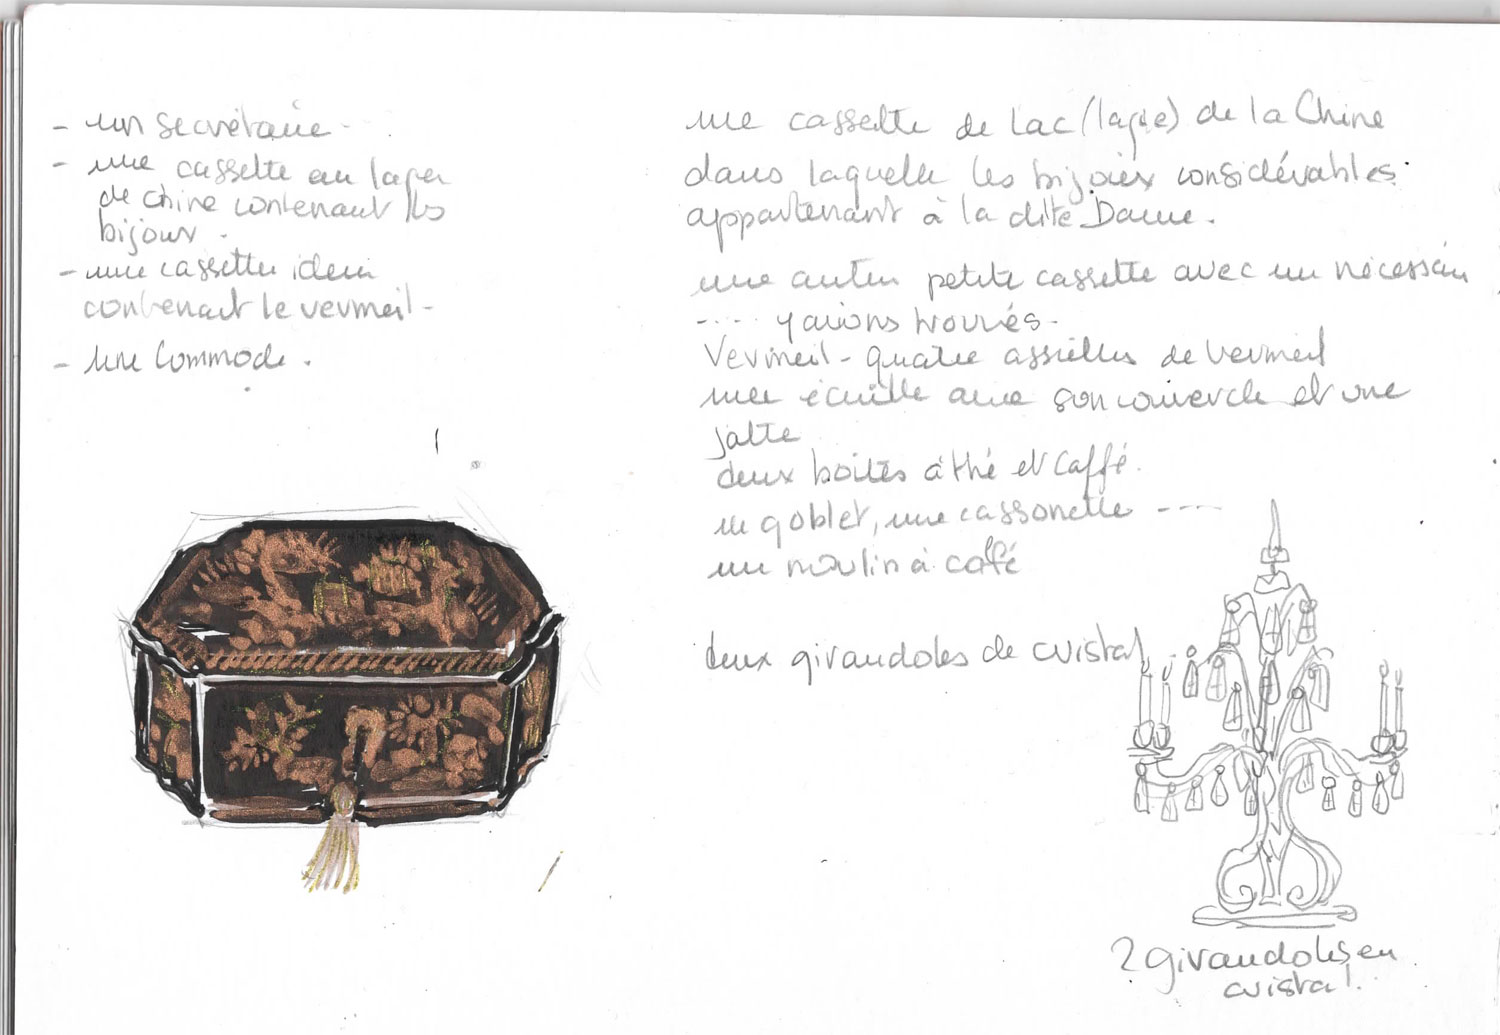 - un secrétaire -
- une cassette en laque
de chine contenant les
bijoux -
- une cassette idem
contenant le vermeil -
- une commode .
une cassette de Lac (laque) de la Chine
dans laquelle les bijoux considérables
appartenant à la dite Dame .
une autre petite cassette avec un nécessaire
---- y avions trouvés -
Vermeil - quatre assiettes de vermeil
une écuelle avec son couvercle et une
jatte
deux boites à thé et Caffé .
un goblet, une cassonette ----
un moulin à café
deux girandoles de cristal
2 girandoles en
cristal .